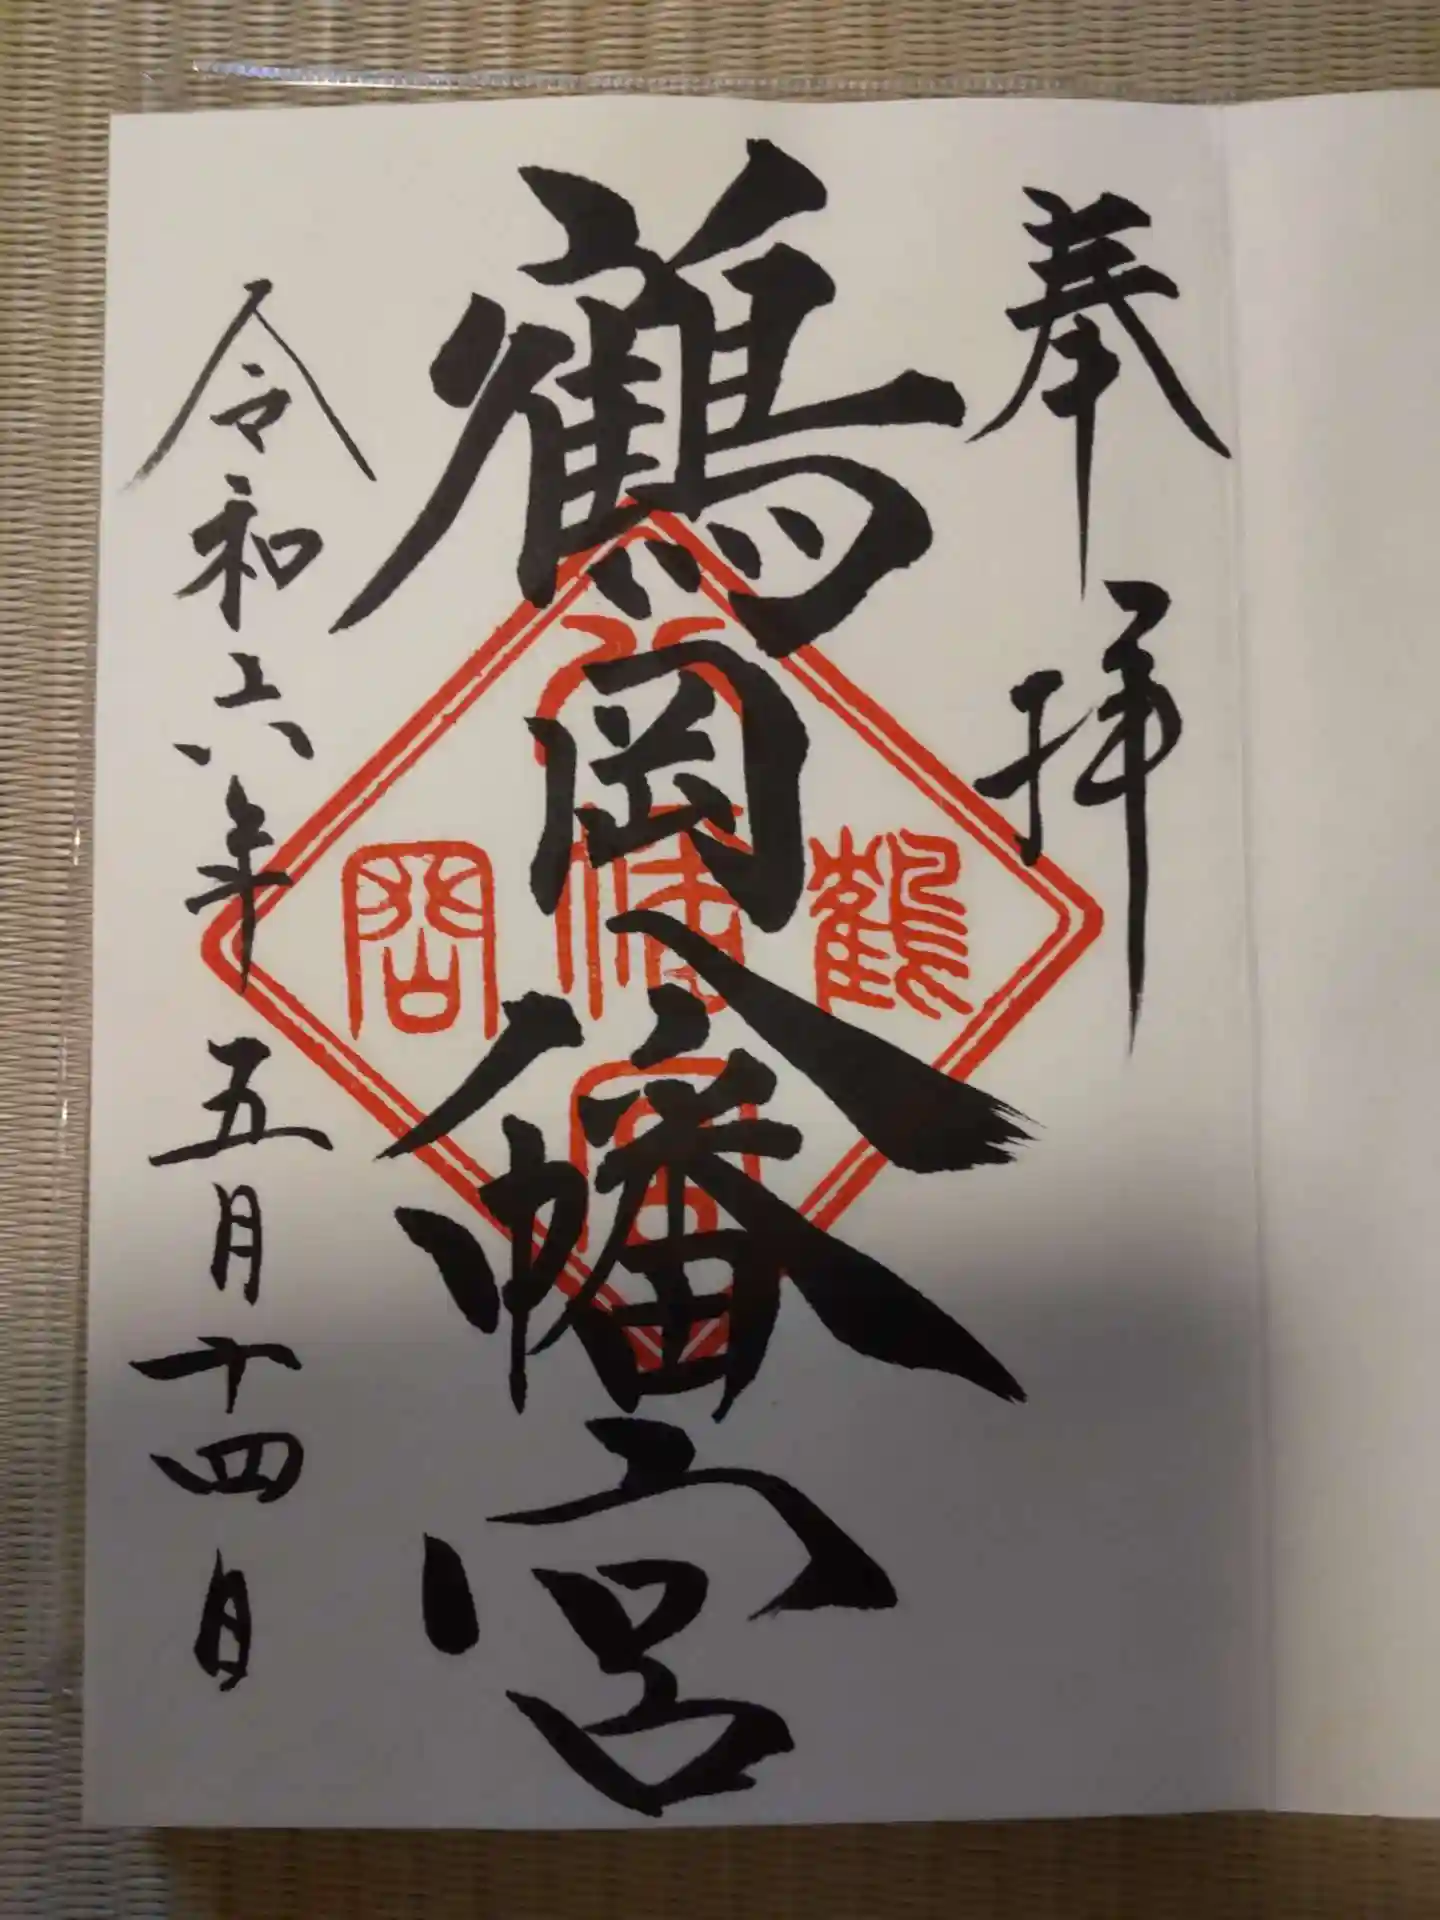 奉拝
鶴岡八幡宮
令和六年五月十四日
鶴
八幡宮
岡